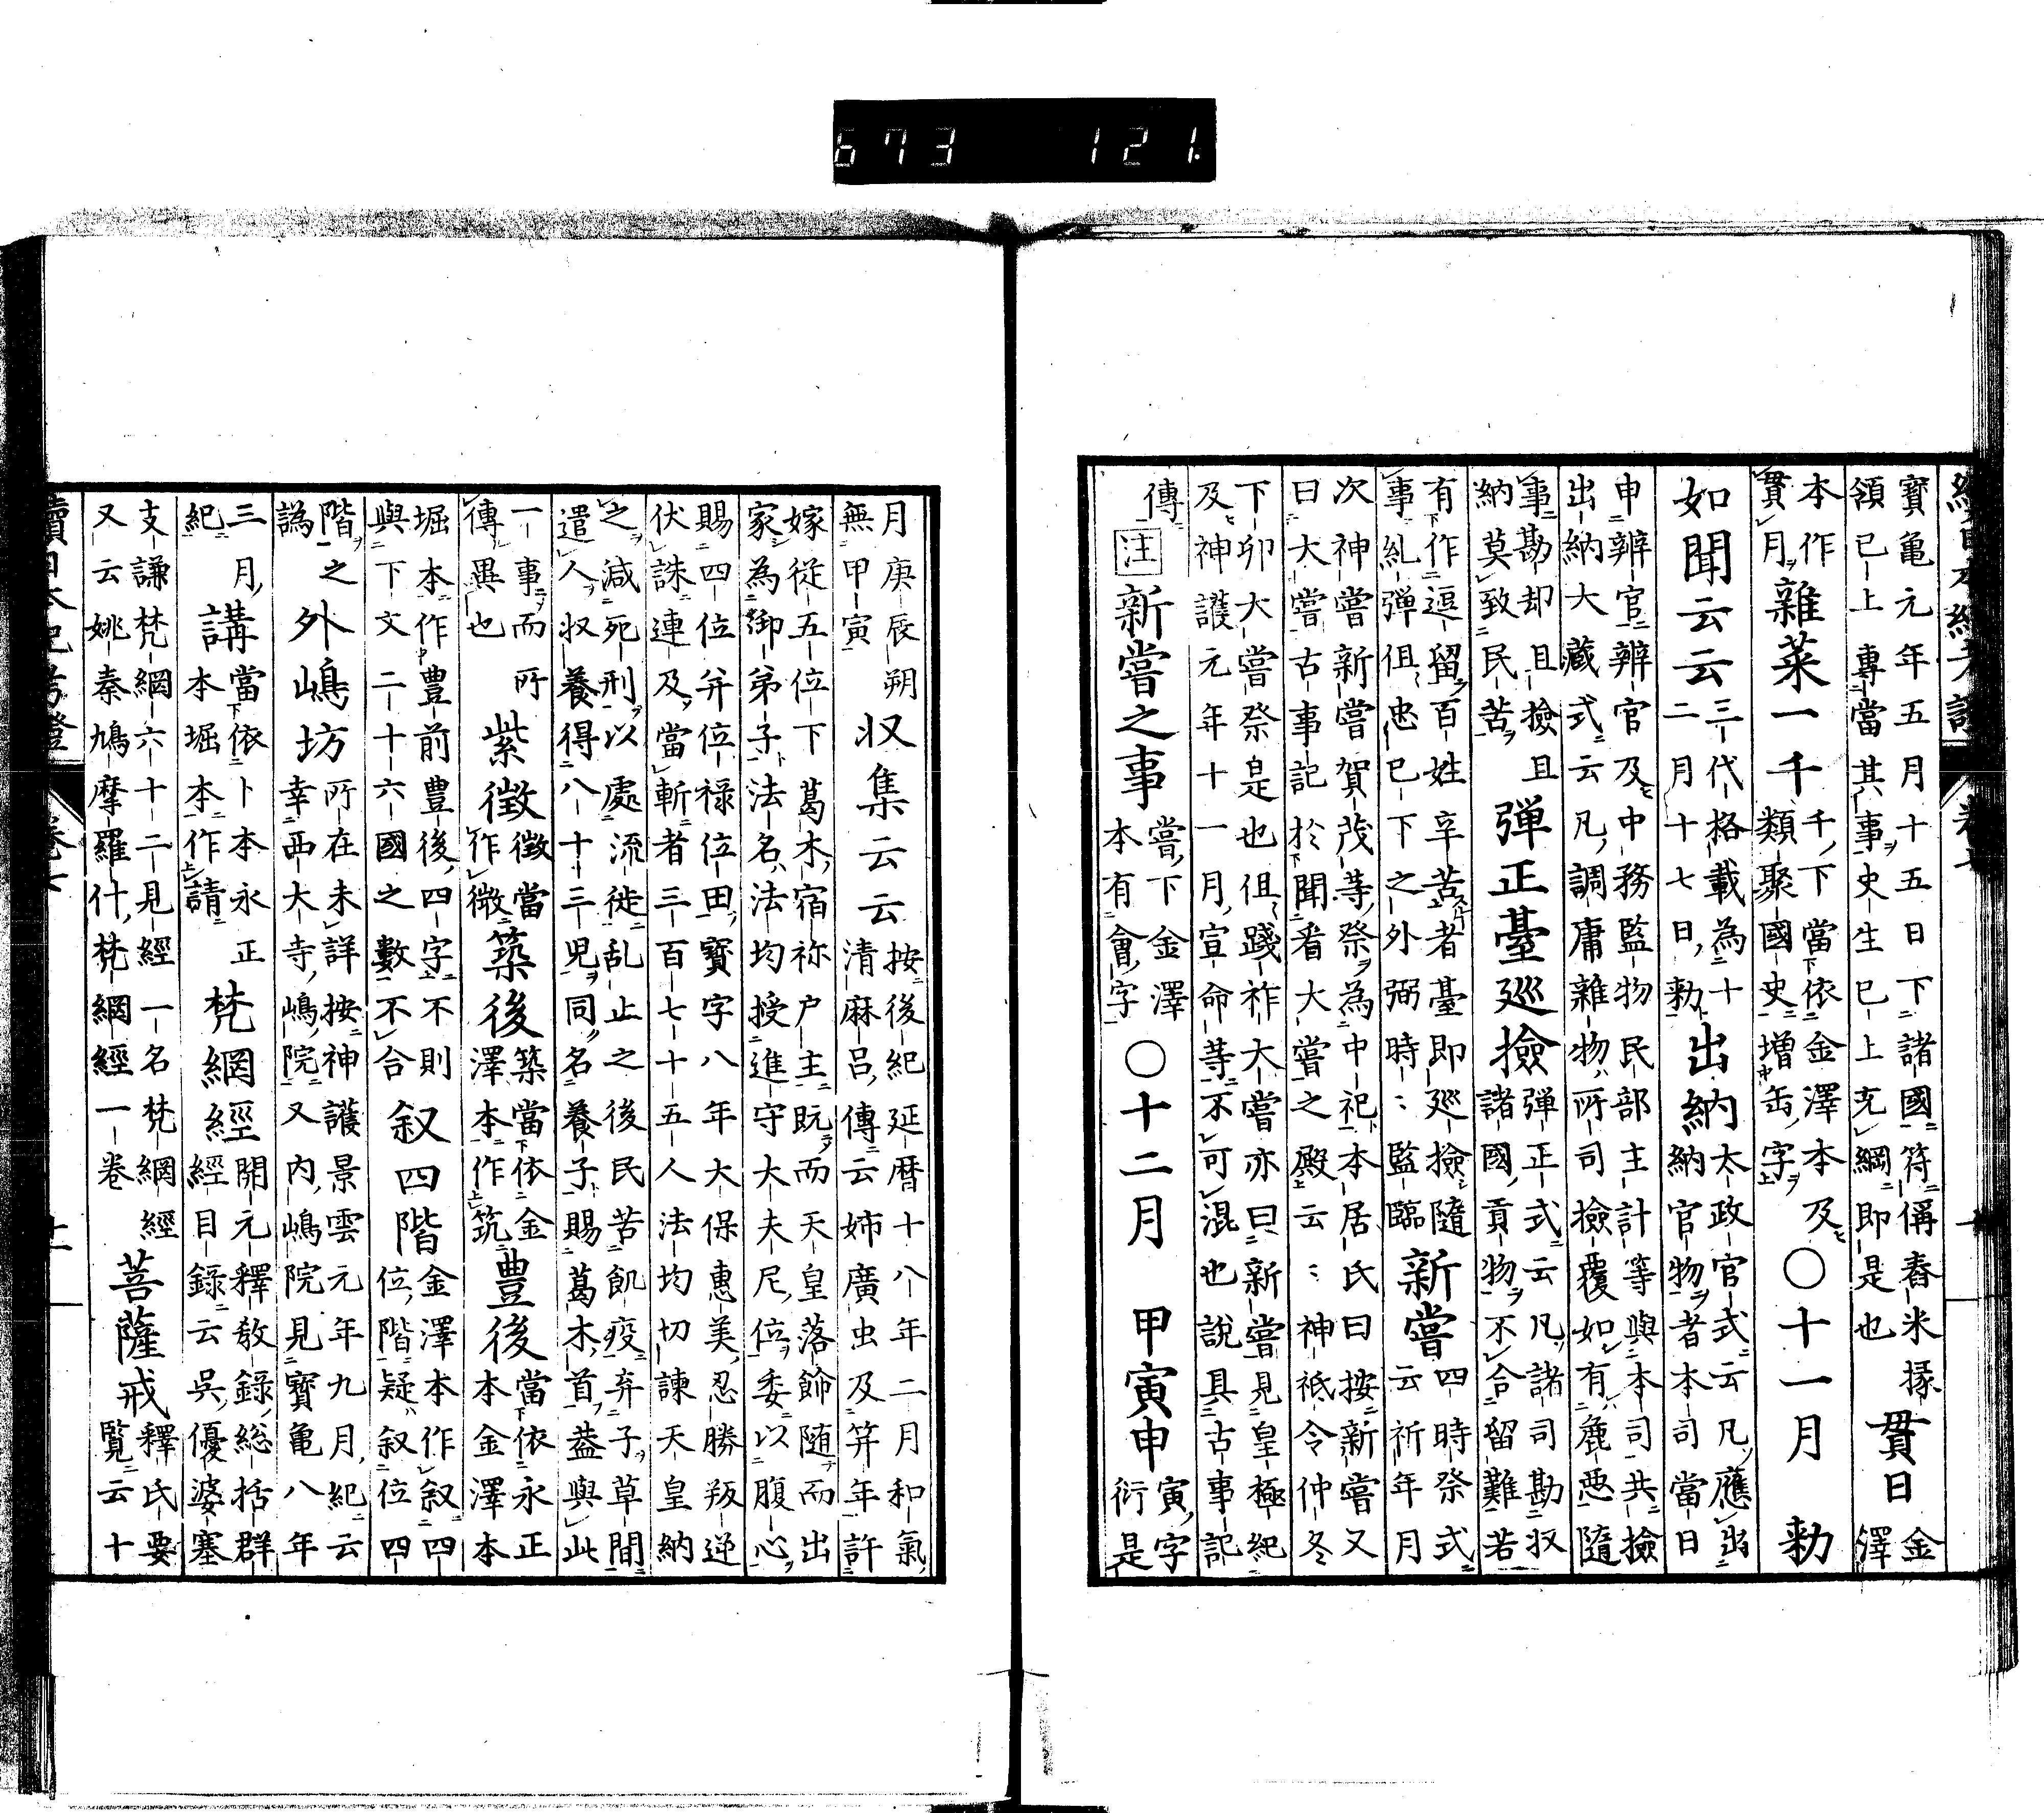 寶亀元年五月十五日下諸國符偁舂米掾
領已上專當其事史生已上充綱即是也
貫日
金
澤
本作
貫月
雜菜一千
千下當依金澤本及
類聚國史増缶字
○十一月　勅
如聞云云
三代格載為十
二月十七日勅
出納
太政官式云凡應出
納官物者本司當日
申辨官辨官及中務監物民部主計等與本司共撿
出納大藏式云凡調庸雜物所司撿覆如有麁惡隨
事勘却且撿且
納莫致民苦
弾正臺巡撿
弾正式云凡諸司勘収
諸國貢物不合留難若
有作逗留百姓辛苦者臺即巡撿隨
事糺弾但忠已下之外弼時〻監臨
新嘗
四時祭式
云祈年月
次神嘗新嘗賀茂等祭為中祀本居氏曰按新嘗又
曰大嘗古事記於聞看大嘗之殿云〻神祇令仲冬
下卯大嘗祭是也但踐祚大嘗亦曰新嘗見皇極紀
及神護元年十一月宣命等不可混也說具古事記
傳
注
新嘗之事
嘗下金澤
本有會字
○十二月　甲寅申
寅字
衍是
月庚辰朔
無甲寅
収集云云
按後紀延暦十八年二月和氣
清麻呂傳云姉廣虫及笄年許
嫁従五位下葛木宿祢戸主既而天皇落飾随而出
家為御弟子法名法均授進守大夫尼位委以腹心
賜四位弁位禄位田寶字八年大保惠美忍勝叛逆
伏誅連及當斬者三百七十五人法均切諫天皇納
之減死刑以處流徙乱止之後民苦飢疫弃子草間
遣人収養得八十三兒同名養子賜葛木首蓋與此
一事而所
傳異也
紫徴
徴當
作微
築後
築當依金
澤本作筑
豊後
當依永正
本金澤本
堀本作豊前豊後四字不則
與下文二十六國之數不合
叙四階
金澤本作叙四
位階疑叙位四
階之
譌
外嶋坊
所在未詳按神護景雲元年九月紀云
幸西大寺嶋院又内嶋院見寶亀八年
三月
紀
講
當依卜本永正
本堀本作請
梵網經
開元釋教錄総括群
經目錄云呉優婆塞
支謙梵網六十二見經一名梵網經
又云姚秦鳩摩羅什梵網經一卷
菩薩戒
釋氏要
覧云十